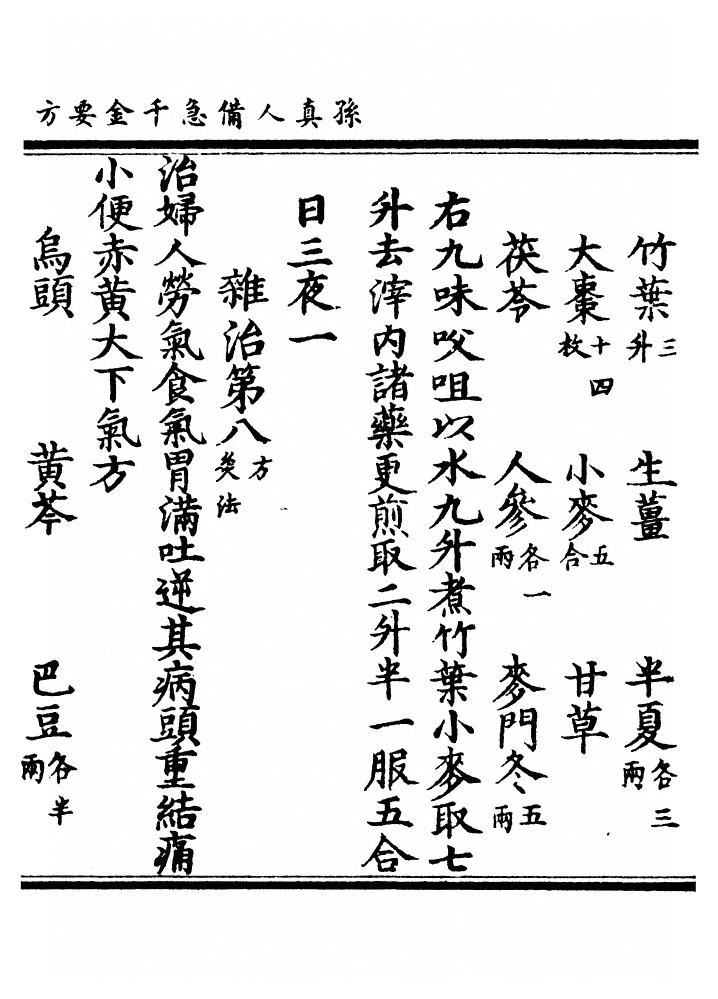 孫真人備急千金要方
竹葉三升 生薑 半夏各三兩
大棗十四枚 小麥五合 甘草
茯苓 人參各一兩 麥門冬五兩
右九味㕮咀以水九升煮竹葉小麥取七
升去滓内諸藥更煎取二升半一服五合
日三夜一
雜治第八方灸法
治婦人勞氣食氣胃滿吐逆其病頭重結痛
小便赤黄大下氣方
烏頭 黄芩 巴豆各半兩